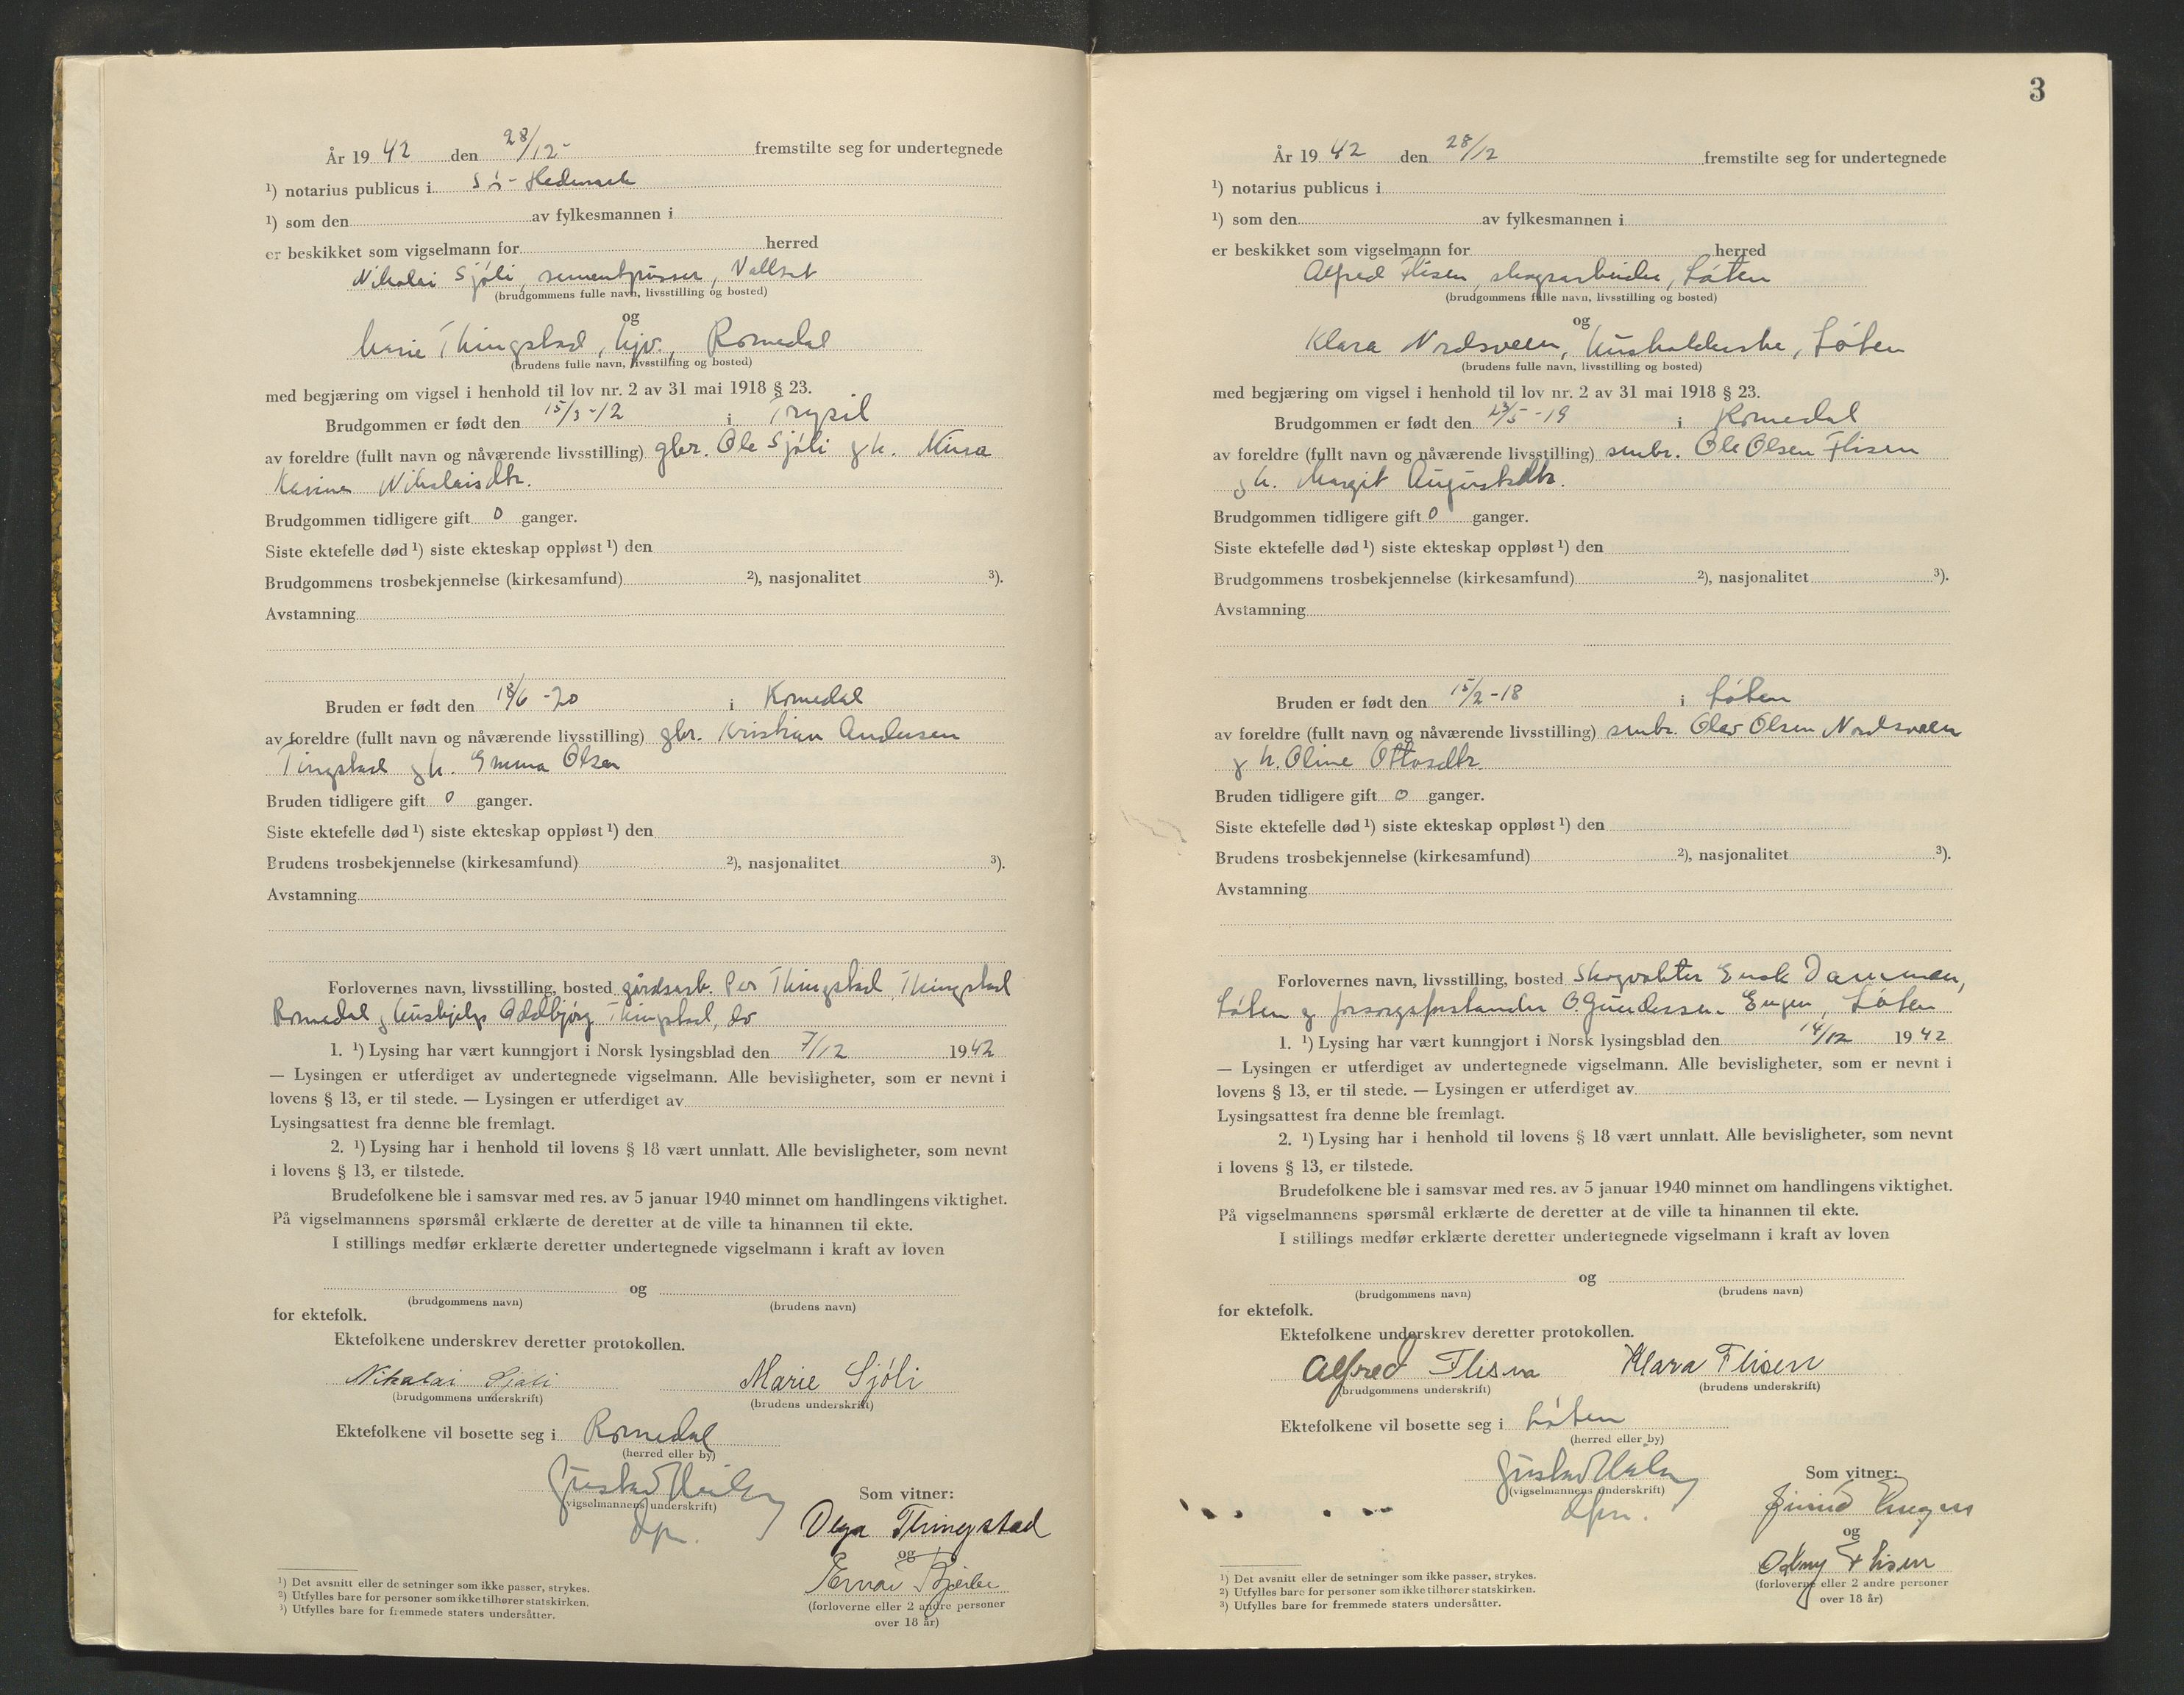 År 19 42 den 28/12- fremstilte seg for undertegnede
¹) notarius publicus i Sö-Hedmark
¹) som den av fylkesmannen i
er beskikket som vigselmann for herred
Nikolai Sjöli, sementpusser, Vallset
(brudgommens fulle navn, livsstilling og bosted)
og
Marie Thingstad, hjv., Romedal
(brudens fulle navn, livsstilling og bosted)
med begjæring om vigsel i henhold til lov nr. 2 av 31 mai 1918 § 23.
Brudgommen er født den 15/3-12 i Trysil
av foreldre (fullt navn og nåværende livsstilling) gbr. Ole Sjöli g h. Mina
Karine Nikolaisdtr.
Brudgommen tidligere gift 0 ganger.
Siste ektefelle død ¹) siste ekteskap oppløst ¹) den
Brudgommens trosbekjennelse (kirkesamfund) ²), nasjonalitet ³).
Avstamning
Bruden er født den 18/6 -20 i Romedal
av foreldre (fullt navn og nåværende livsstilling) gbr. Kristian Andersen
Tingstad g h. Emma Olsen
Bruden tidligere gift 0 ganger.
Siste ektefelle død ¹) siste ekteskap oppløst ¹) den
Brudens trosbekjennelse (kirkesamfund) ²), nasjonalitet ³).
Avstamning
Forlovernes navn, livsstilling, bosted gårdsarb. Per Thingstad, Thingstad
Romedal g hushjelp Oddbjørg Thingstad, do
1. ¹) Lysing har vært kunngjort i Norsk lysingsblad den 7/12 19 42
— Lysingen er utferdiget av undertegnede vigselmann. Alle bevisligheter, som er nevnt i
lovens § 13, er til stede. — Lysingen er utferdiget av
Lysingsattest fra denne ble fremlagt.
2. ¹) Lysing har i henhold til lovens § 18 vært unnlatt. Alle bevisligheter, som nevnt
i lovens § 13, er tilstede.
Brudefolkene ble i samsvar med res. av 5 januar 1940 minnet om handlingens viktighet.
På vigselmannens spørsmål erklærte de deretter at de ville ta hinannen til ekte.
I stillings medfør erklærte deretter undertegnede vigselmann i kraft av loven
og
(brudgommens navn) (brudens navn)
for ektefolk.
Ektefolkene underskrev deretter protokollen.
Nikolai Sjöli Marie Sjöli
(brudgommens underskrift) (brudens underskrift)
Ektefolkene vil bosette seg i Romedal
(herred eller by)
Gustav
(vigselmannens underskrift)
Som vitner:
Olga Thingstad
og
(forloverne eller 2 andre personer
over 18 år)
¹) Det avsnitt eller de setninger som ikke passer, strykes.
²) Utfylles bare for personer som ikke tilhører statskirken.
³) Utfylles bare for fremmede staters undersåtter.
3
År 19 42 den 28/12 fremstilte seg for undertegnede
¹) notarius publicus i
¹) som den av fylkesmannen i
er beskikket som vigselmann for herred
Alfred Flisen, skogsarbeider, Löten
(brudgommens fulle navn, livsstilling og bosted)
og
Klara Nordsveen, husholderske, Löten
(brudens fulle navn, livsstilling og bosted)
med begjæring om vigsel i henhold til lov nr. 2 av 31 mai 1918 § 23.
Brudgommen er født den /5 -19 i Romedal
av foreldre (fullt navn og nåværende livsstilling) smbr. Ole Olsen Flisen
g h. Margit Augustdtr.
Brudgommen tidligere gift 0 ganger.
Siste ektefelle død ¹) siste ekteskap oppløst ¹) den
Brudgommens trosbekjennelse (kirkesamfund) ²), nasjonalitet ³).
Avstamning
Bruden er født den 15/2-18 i Löten
av foreldre (fullt navn og nåværende livsstilling) smbr. Olav Olsen Nordsveen
g h. Oline Ottosdtr.
Bruden tidligere gift 0 ganger.
Siste ektefelle død ¹) siste ekteskap oppløst ¹) den
Brudens trosbekjennelse (kirkesamfund) ²), nasjonalitet ³).
Avstamning
Forlovernes navn, livsstilling, bosted Skogvokter Enok Dammen,
Löten g forsorgsforstander O. Gundersen Engen, Löten
1. ¹) Lysing har vært kunngjort i Norsk lysingsblad den 14/12 19 42
— Lysingen er utferdiget av undertegnede vigselmann. Alle bevisligheter, som er nevnt i
lovens § 13, er til stede. — Lysingen er utferdiget av
Lysingsattest fra denne ble fremlagt.
2. ¹) Lysing har i henhold til lovens § 18 vært unnlatt. Alle bevisligheter, som nevnt
i lovens § 13, er tilstede.
Brudefolkene ble i samsvar med res. av 5 januar 1940 minnet om handlingens viktighet.
På vigselmannens spørsmål erklærte de deretter at de ville ta hinannen til ekte.
I stillings medfør erklærte deretter undertegnede vigselmann i kraft av loven
og
(brudgommens navn) (brudens navn)
for ektefolk.
Ektefolkene underskrev deretter protokollen.
Alfred Flisen Klara Flisen
(brudgommens underskrift) (brudens underskrift)
Ektefolkene vil bosette seg i Löten
(herred eller by)
Gustav
(vigselmannens underskrift)
Som vitner:
og
Odny Flisen
(forloverne eller 2 andre personer
over 18 år)
¹) Det avsnitt eller de setninger som ikke passer, strykes.
²) Utfylles bare for personer som ikke tilhører statskirken.
³) Utfylles bare for fremmede staters undersåtter.